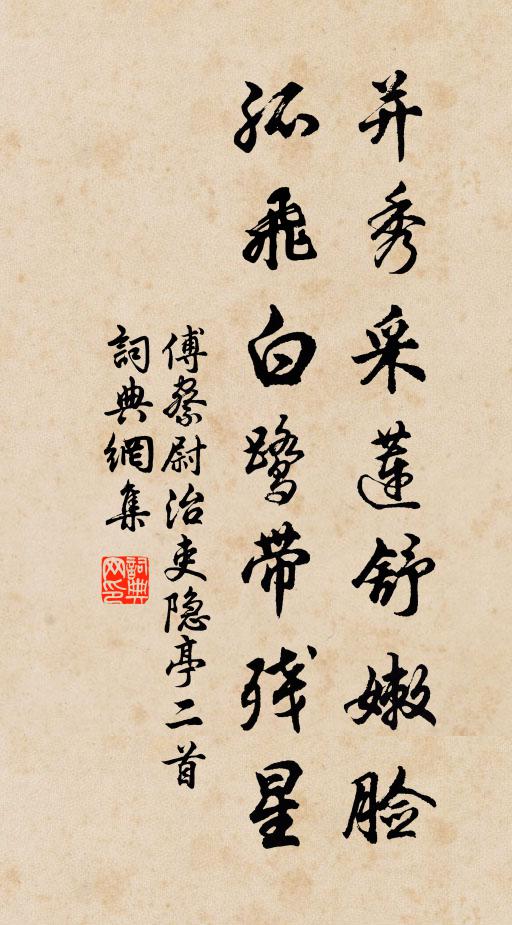 并秀采莲舒嫩脸
孤飞白鹭带残星
傅察尉治吏隐亭二首
詞典網集
詞典網印